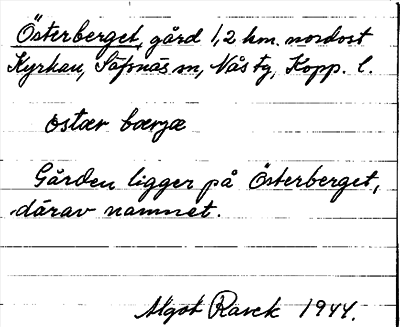 Österberget, gård 1,2 km. nordost
Kyrkan, Säfsnäs sn, Nås tg, Kopp. l.
ostær bærjæ
Gården ligger på Österberget,
därav namnet.
Algot Rasck 1944.